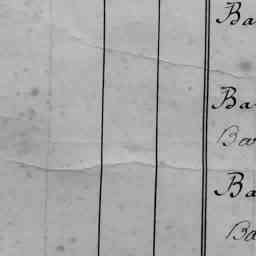 Ba
Ba
Ba
Ba
Ba